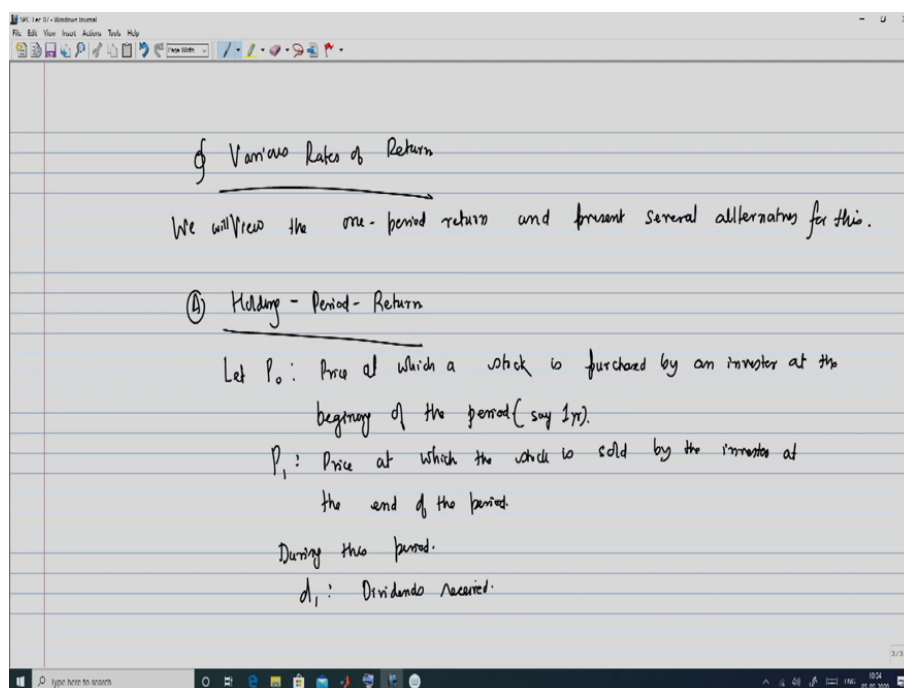 SPC Lec 07 - Windows Journal
File Edit View Insert Actions Tools Help
Page Width
§ Various Rates of Return
We will view the one-period return and present several allternatives for this.
(A) Holding-Period-Return
Let P₀: Price at which a stock is purchased by an investor at the
beginning of the period (say 1 yr).
P₁: Price at which the stock is sold by the investor at
the end of the period.
During this period.
d₁: Dividends received.
3/3
Type here to search
ENG
10:54